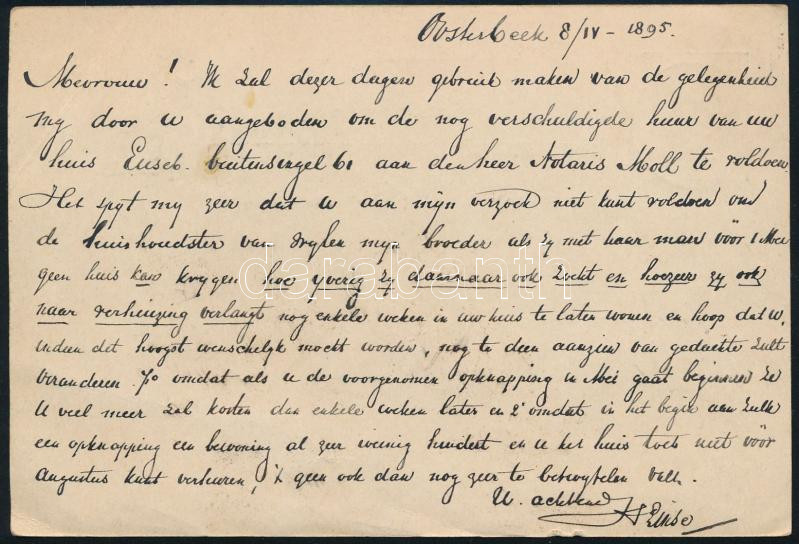 Oosterbeek 8/IV - 1895.
Mevrouw! Ik zal dezer dagen gebruik maken van de gelegenheid
my door u aangeboden om de nog verschuldigde huur van uw
huis Euseb. buitensingel 61 aan den heer Notaris Moll te voldoen.
Het spyt my zeer dat u aan myn verzoek niet kunt voldoen om
de huishoudster van wylen myn broeder als zy met haar man vóór 1 Mei
geen huis kan krygen hoe yverig zy daarnaar ook zoekt en hoezeer zy ook
naar verhuizing verlangt nog enkele weken in uw huis te laten wonen en hoop dat u,
indien dit hoogst wenschelyk mocht worden, nog te dien aanzien van gedachte zult
veranderen. 1o omdat als u de voorgenomen opknapping in Mei gaat beginnen ze
U veel meer zal kosten dan enkele weken later en 2o omdat in het begin aan zulk
een opknapping een bewoning al zeer weinig hindert en u het huis toch niet vóór
Augustus kunt verhuren, 't geen ook dan nog zeer te betwyfelen valt.
U. achtend
darabanth